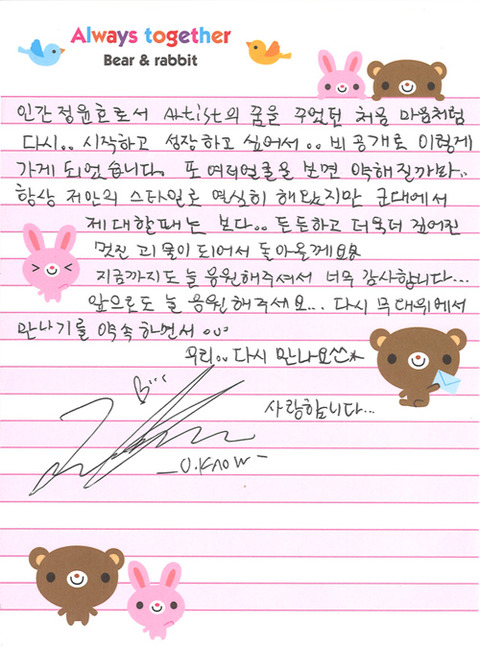 Always together
Bear & rabbit
인간정윤호로서 Artist의 꿈을 꾸었던 처음 마음처럼
다시.. 시작하고 성장하고 싶어서.. 비공개로 이렇게
가게 되었습니다. 또 여러얼굴을 보면 약해질까봐..
항상 저만의 스타일로 열심히 해왔지만 군대에서
제대할때는 보다.. 튼튼하고 더욱더 깊어진
멋진 괴물이되어서 돌아올께요
지금까지도 늘 응원해주셔서 너무 감사합니다...
앞으로도 늘 응원해주세요... 다시 무대위에서
만나기를 약속하면서
우리.. 다시 만나요
사랑합니다...
-U.Know-